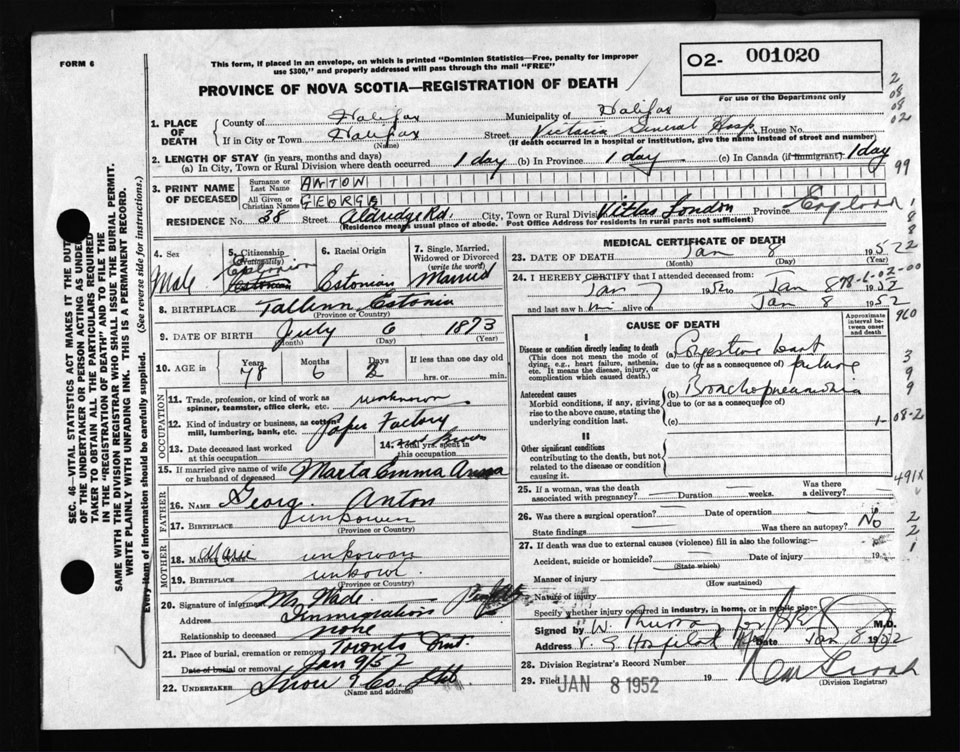 FORM 6
This form, if placed in an envelope, on which is printed "Dominion Statistics—Free, penalty for improper
use $300," and properly addressed will pass through the mail "FREE"
O2- 001020
For use of the Department only
PROVINCE OF NOVA SCOTIA—REGISTRATION OF DEATH
2
08
08
02
99
1. PLACE OF DEATH
County of Halifax Municipality of Halifax
If in City or Town Halifax Street Victoria General Hosp House No.
(Name) (If death occurred in a hospital or institution, give the name instead of street and number)
2. LENGTH OF STAY (in years, months and days)
(a) In City, Town or Rural Division where death occurred 1 day (b) In Province 1 day (c) In Canada (if immigrant) 1 day
3. PRINT NAME OF DECEASED
Surname or Last Name ANTON
All Given or Christian Names GEORGE
RESIDENCE No. 38 Street Aldredge Rd. City, Town or Rural Division London Province England
(Residence means usual place of abode. Post Office Address for residents in rural parts not sufficient)
4. Sex Male
5. Citizenship (Nationality) Estonian
6. Racial Origin Estonian
7. Single, Married, Widowed or Divorced (write the word) Married
8. BIRTHPLACE Tallinn Estonia
(Province or Country)
9. DATE OF BIRTH July 6 1873
(Month) (Day) (Year)
10. AGE in Years Months Days If less than one day old
78 6 2 hrs. or min.
OCCUPATION
11. Trade, profession, or kind of work as spinner, teamster, office clerk, etc. unknown
12. Kind of industry or business, as cotton mill, lumbering, bank, etc. Paper Factory
13. Date deceased last worked at this occupation
14. Total yrs. spent in this occupation
15. If married give name of wife or husband of deceased Marta Emma
FATHER
16. NAME Georg Anton
17. BIRTHPLACE unknown
(Province or Country)
MOTHER
18. MAIDEN NAME Marie unkown
19. BIRTHPLACE unkow
(Province or Country)
20. Signature of informant Mr. Wade.
Address Immigration
Relationship to deceased none
21. Place of burial, cremation or removal Toronto Ont.
Date of burial or removal Jan 9/52
22. UNDERTAKER Snow & Co. Ltd
(Name and address)
MEDICAL CERTIFICATE OF DEATH
23. DATE OF DEATH Jan 8 1952
(Month) (Day) (Year)
24. I HEREBY CERTIFY that I attended deceased from:
Jan 7 1952 to Jan 8 1952
and last saw him alive on Jan 8 1952
78-6-02-00
CAUSE OF DEATH
Approximate interval between onset and death
I
Disease or condition directly leading to death
(This does not mean the mode of dying, e.g., heart failure, asthenia, etc. It means the disease, injury, or complication which caused death.)
(a) Congestive heart failure
due to (or as a consequence of)
Antecedent causes
Morbid conditions, if any, giving rise to the above cause, stating the underlying condition last.
(b) Bronchopneumonia
due to (or as a consequence of)
(c)
II
Other significant conditions
contributing to the death, but not related to the disease or condition causing it.
25. If a woman, was the death associated with pregnancy? Duration weeks. Was there a delivery?
26. Was there a surgical operation? Date of operation
State findings Was there an autopsy? No
27. If death was due to external causes (violence) fill in also the following:
Accident, suicide or homicide? Date of injury 19
(State which)
Manner of injury
(How sustained)
Nature of injury
Specify whether injury occurred in industry, in home, or in public place
Signed by W. M.D.
Address V. G. Hospital Date Jan 8 1952
28. Division Registrar's Record Number
29. Filed JAN 8 1952 19
(Division Registrar)
960
3
9
9
08-2
491X
2
2
1
SEC. 46—VITAL STATISTICS ACT MAKES IT THE DUTY
OF THE UNDERTAKER OR PERSON ACTING AS UNDER-
TAKER TO OBTAIN ALL THE PARTICULARS REQUIRED
IN THE "REGISTRATION OF DEATH" AND TO FILE THE
SAME WITH THE DIVISION REGISTRAR WHO SHALL ISSUE THE BURIAL PERMIT.
WRITE PLAINLY WITH UNFADING INK. THIS IS A PERMANENT RECORD.
Every item of information should be carefully supplied. (See reverse side for instructions.)